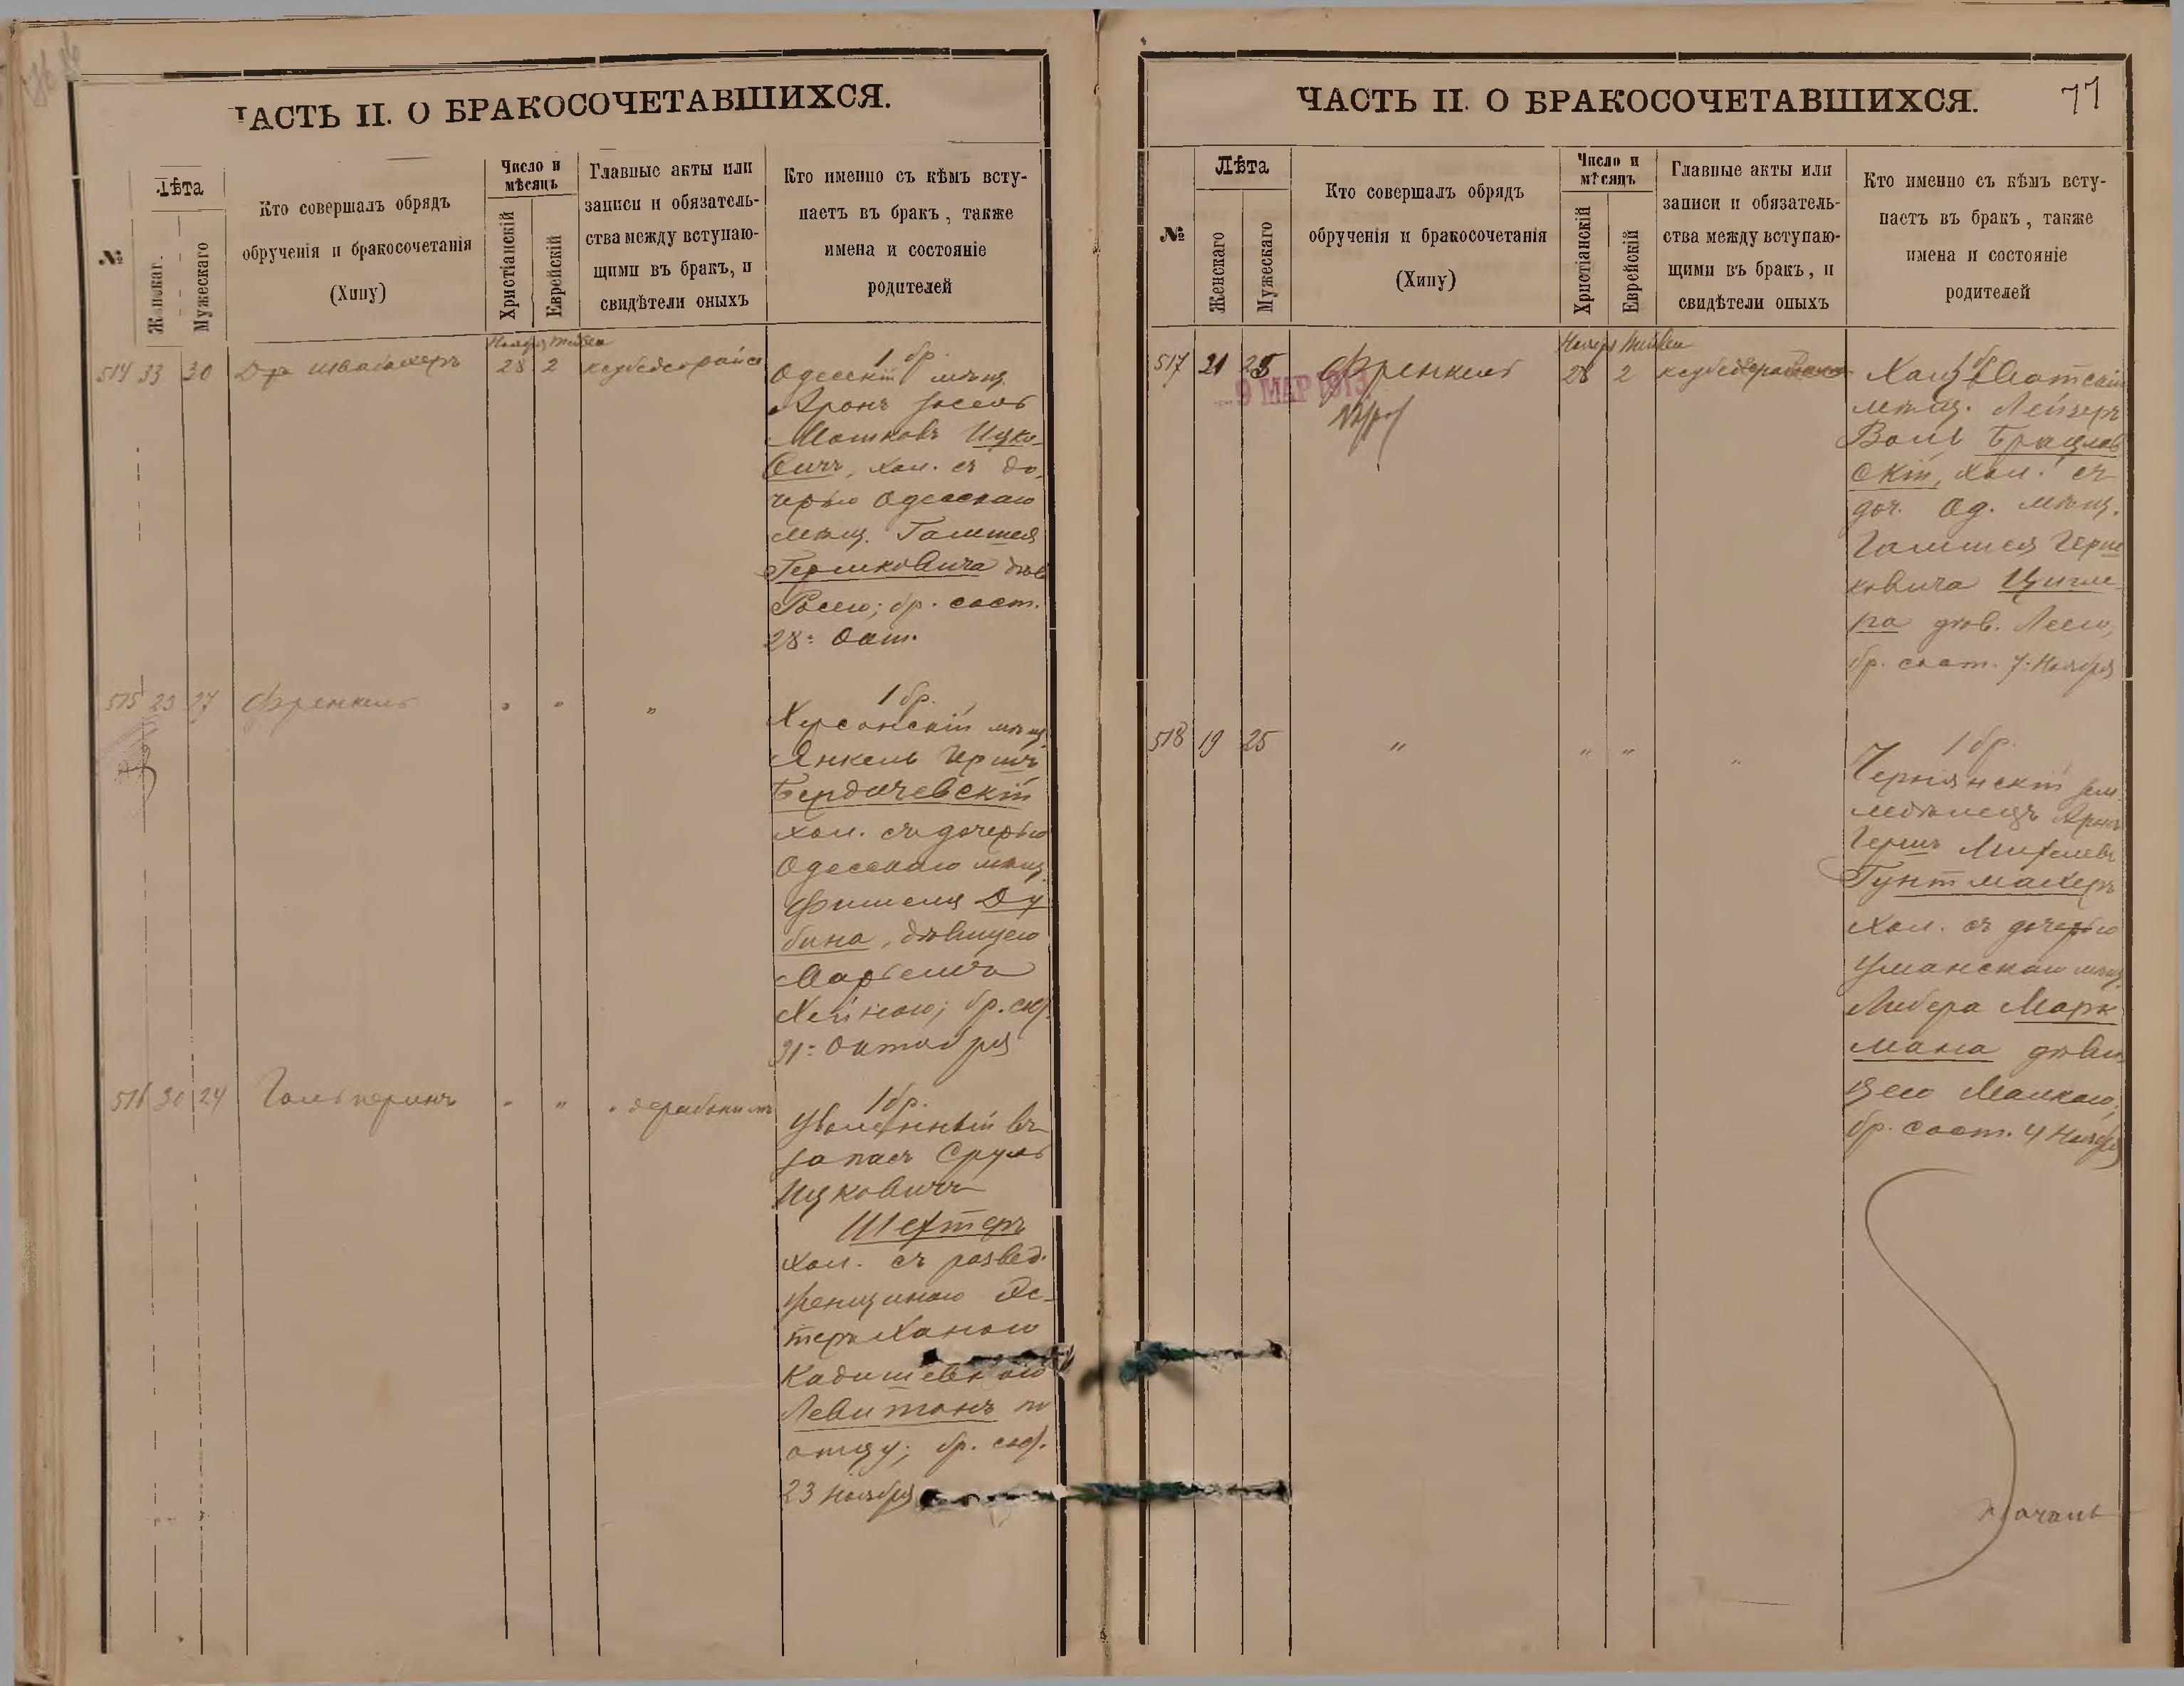 ЧАСТЬ II. О БРАКОСОЧЕТАВШИХСЯ.
№
Лѣта
Женскаг.
Мужескаго
Кто совершалъ обрядъ
обрученія и бракосочетанія
(Хипу)
Число и
мѣсяцъ
Христіанскій
Еврейскій
Главные акты или
записи и обязатель-
ства между вступаю-
щими въ бракъ, и
свидѣтели оныхъ
Кто именно съ кѣмъ всту-
паетъ въ бракъ, также
имена и состояніе
родителей
514 33 30 Др Швабахеръ 28 2
1 бр.
Одесскій мѣщ.
Аронъ Іосель
Мошковъ Ицко-
вичъ, хол. съ до-
черью Одесскаго
мѣщ. Гамшея
Гершковича дѣв.
Росею; бр. сост.
28: Окт.
515 23 27 Френкель " " "
1 бр.
Херсонскій мѣщ.
Янкель Гершъ
Бердичевскій
хол. съ дочерью
Одесскаго мѣщ.
Фишеля Ду
бина, дѣвицею
Хейною; бр.
31: Октября
516 30 24 Гальперинъ " " "
1 бр.
Уволенный въ
запасъ Сруль
Ицковичъ
Шехтеръ
хол. съ развед.
женщиною Эс-
теръ Ханою
Кадишевною
Левитанъ по
отцу; бр.
23 Ноября
ЧАСТЬ II. О БРАКОСОЧЕТАВШИХСЯ.
77
№
Лѣта
Женскаго
Мужескаго
Кто совершалъ обрядъ
обрученія и бракосочетанія
(Хипу)
Число и
мѣсяцъ
Христіанскій
Еврейскій
Главные акты или
записи и обязатель-
ства между вступаю-
щими въ бракъ, и
свидѣтели оныхъ
Кто именно съ кѣмъ всту-
паетъ въ бракъ, также
имена и состояніе
родителей
517 21 25 Френкель 28 2
9 МАР 1913
1 бр.
мѣщ. Лейзеръ
Вольъ Брацлав
скій, хол. съ
доч. Од. мѣщ.
Гамшея Герш
ковича Цигле-
ра дѣв. Леею,
бр. сост. 7: Ноября
518 19 25 " " " "
1 бр.
Чернянскій зем
ледѣлецъ Аронъ
Гершъ Михелевъ
Гунтмахеръ
хол. съ дочерью
Уманскаго мѣщ.
Либера Марк
мана дѣви-
цею Малкою;
бр. сост. 4 Ноября